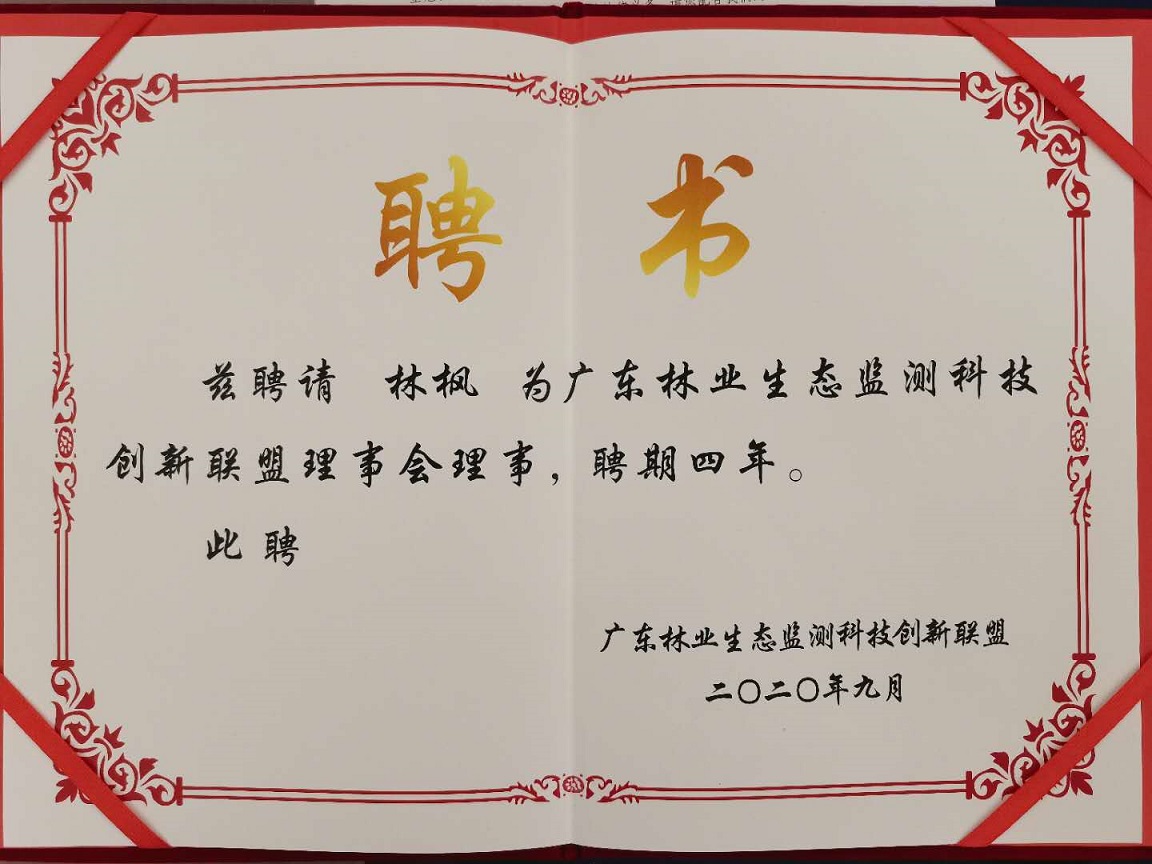 聘书
兹聘请 林枫 为广东林业生态监测科技
创新联盟理事会理事，聘期四年。
此聘
广东林业生态监测科技创新联盟
二〇二〇年九月